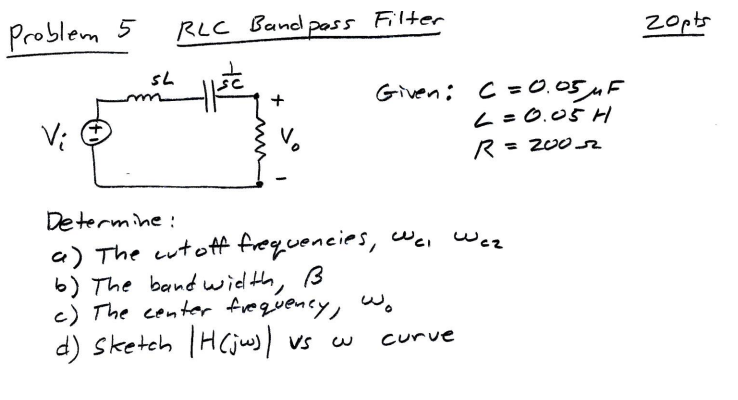 Problem 5 RLC Bandpass Filter 20pts
sL 1/sC
Given: C = 0.05 μF
+
L = 0.05 H
Vi + - Vo
R = 200 Ω
-
Determine:
a) The cutoff frequencies, ωc1 ωc2
b) The bandwidth, β
c) The center frequency, ω0
d) Sketch |H(jω)| vs ω curve